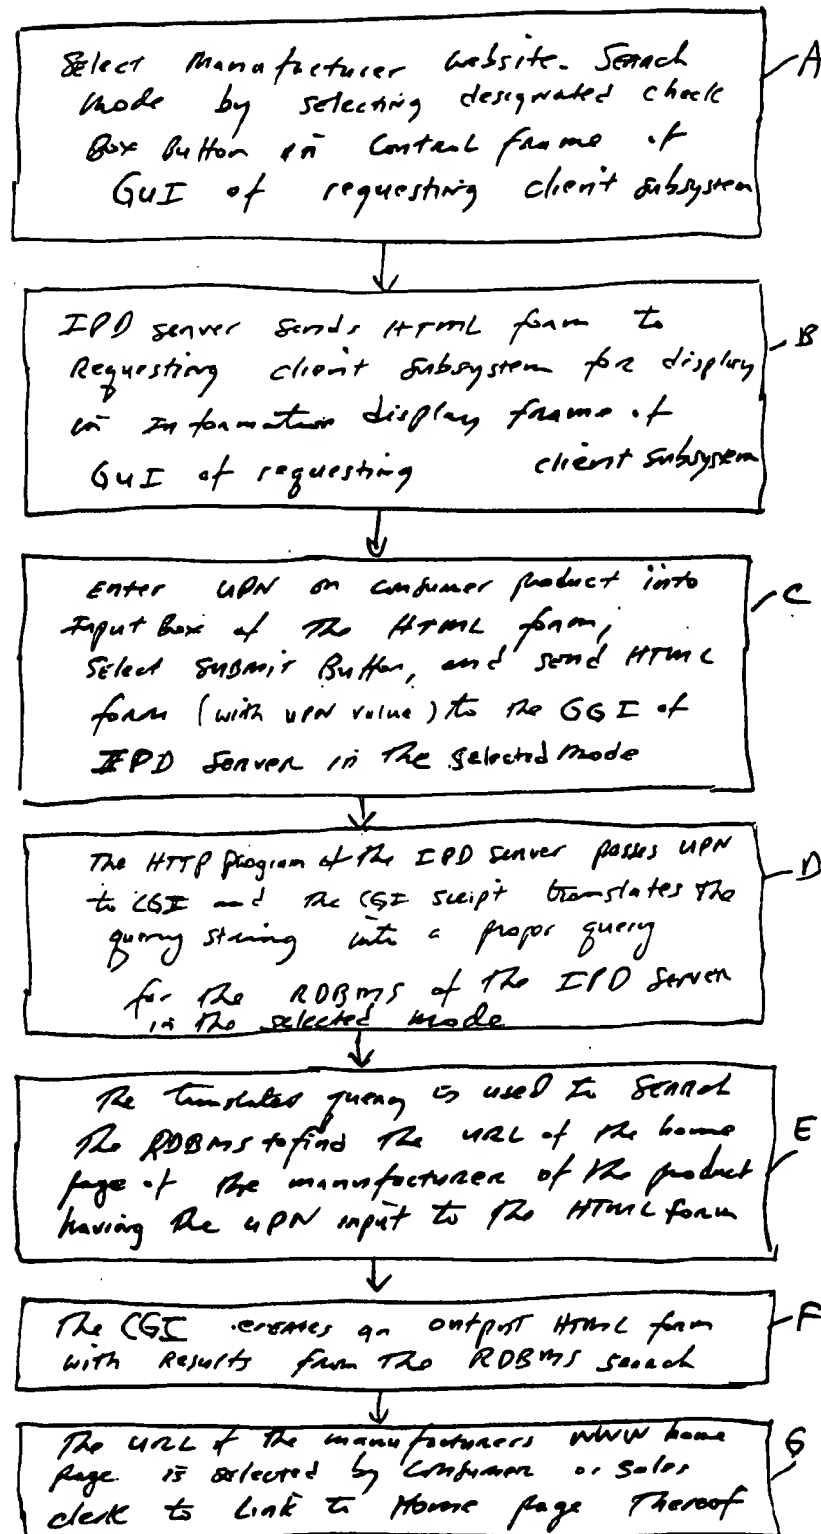 Select Manufacturer Website Search
Mode by selecting designated check
Box Button in Control frame of
GUI of requesting client subsystem
A
IPD server sends HTML form to
Requesting client subsystem for display
in Information display frame of
GUI of requesting client subsystem
B
Enter UPN on consumer product into
Input Box of the HTML form,
Select SUBMIT Button, and send HTML
form (with UPN value) to the GGI of
IPD Server in the selected mode
C
The HTTP program of the IPD server passes UPN
to CGI and the CGI script translates the
query string into a proper query
for the RDBMS of the IPD Server
in the selected mode
D
The translated query is used to Search
the RDBMS to find the URL of the home
page of the manufacturer of the product
having the UPN input to the HTML form
E
The CGI creates an output HTML form
with Results from the RDBMS search
F
The URL of the manufacturers WWW home
page is selected by Consumer or sales
clerk to Link to Home page Thereof
G